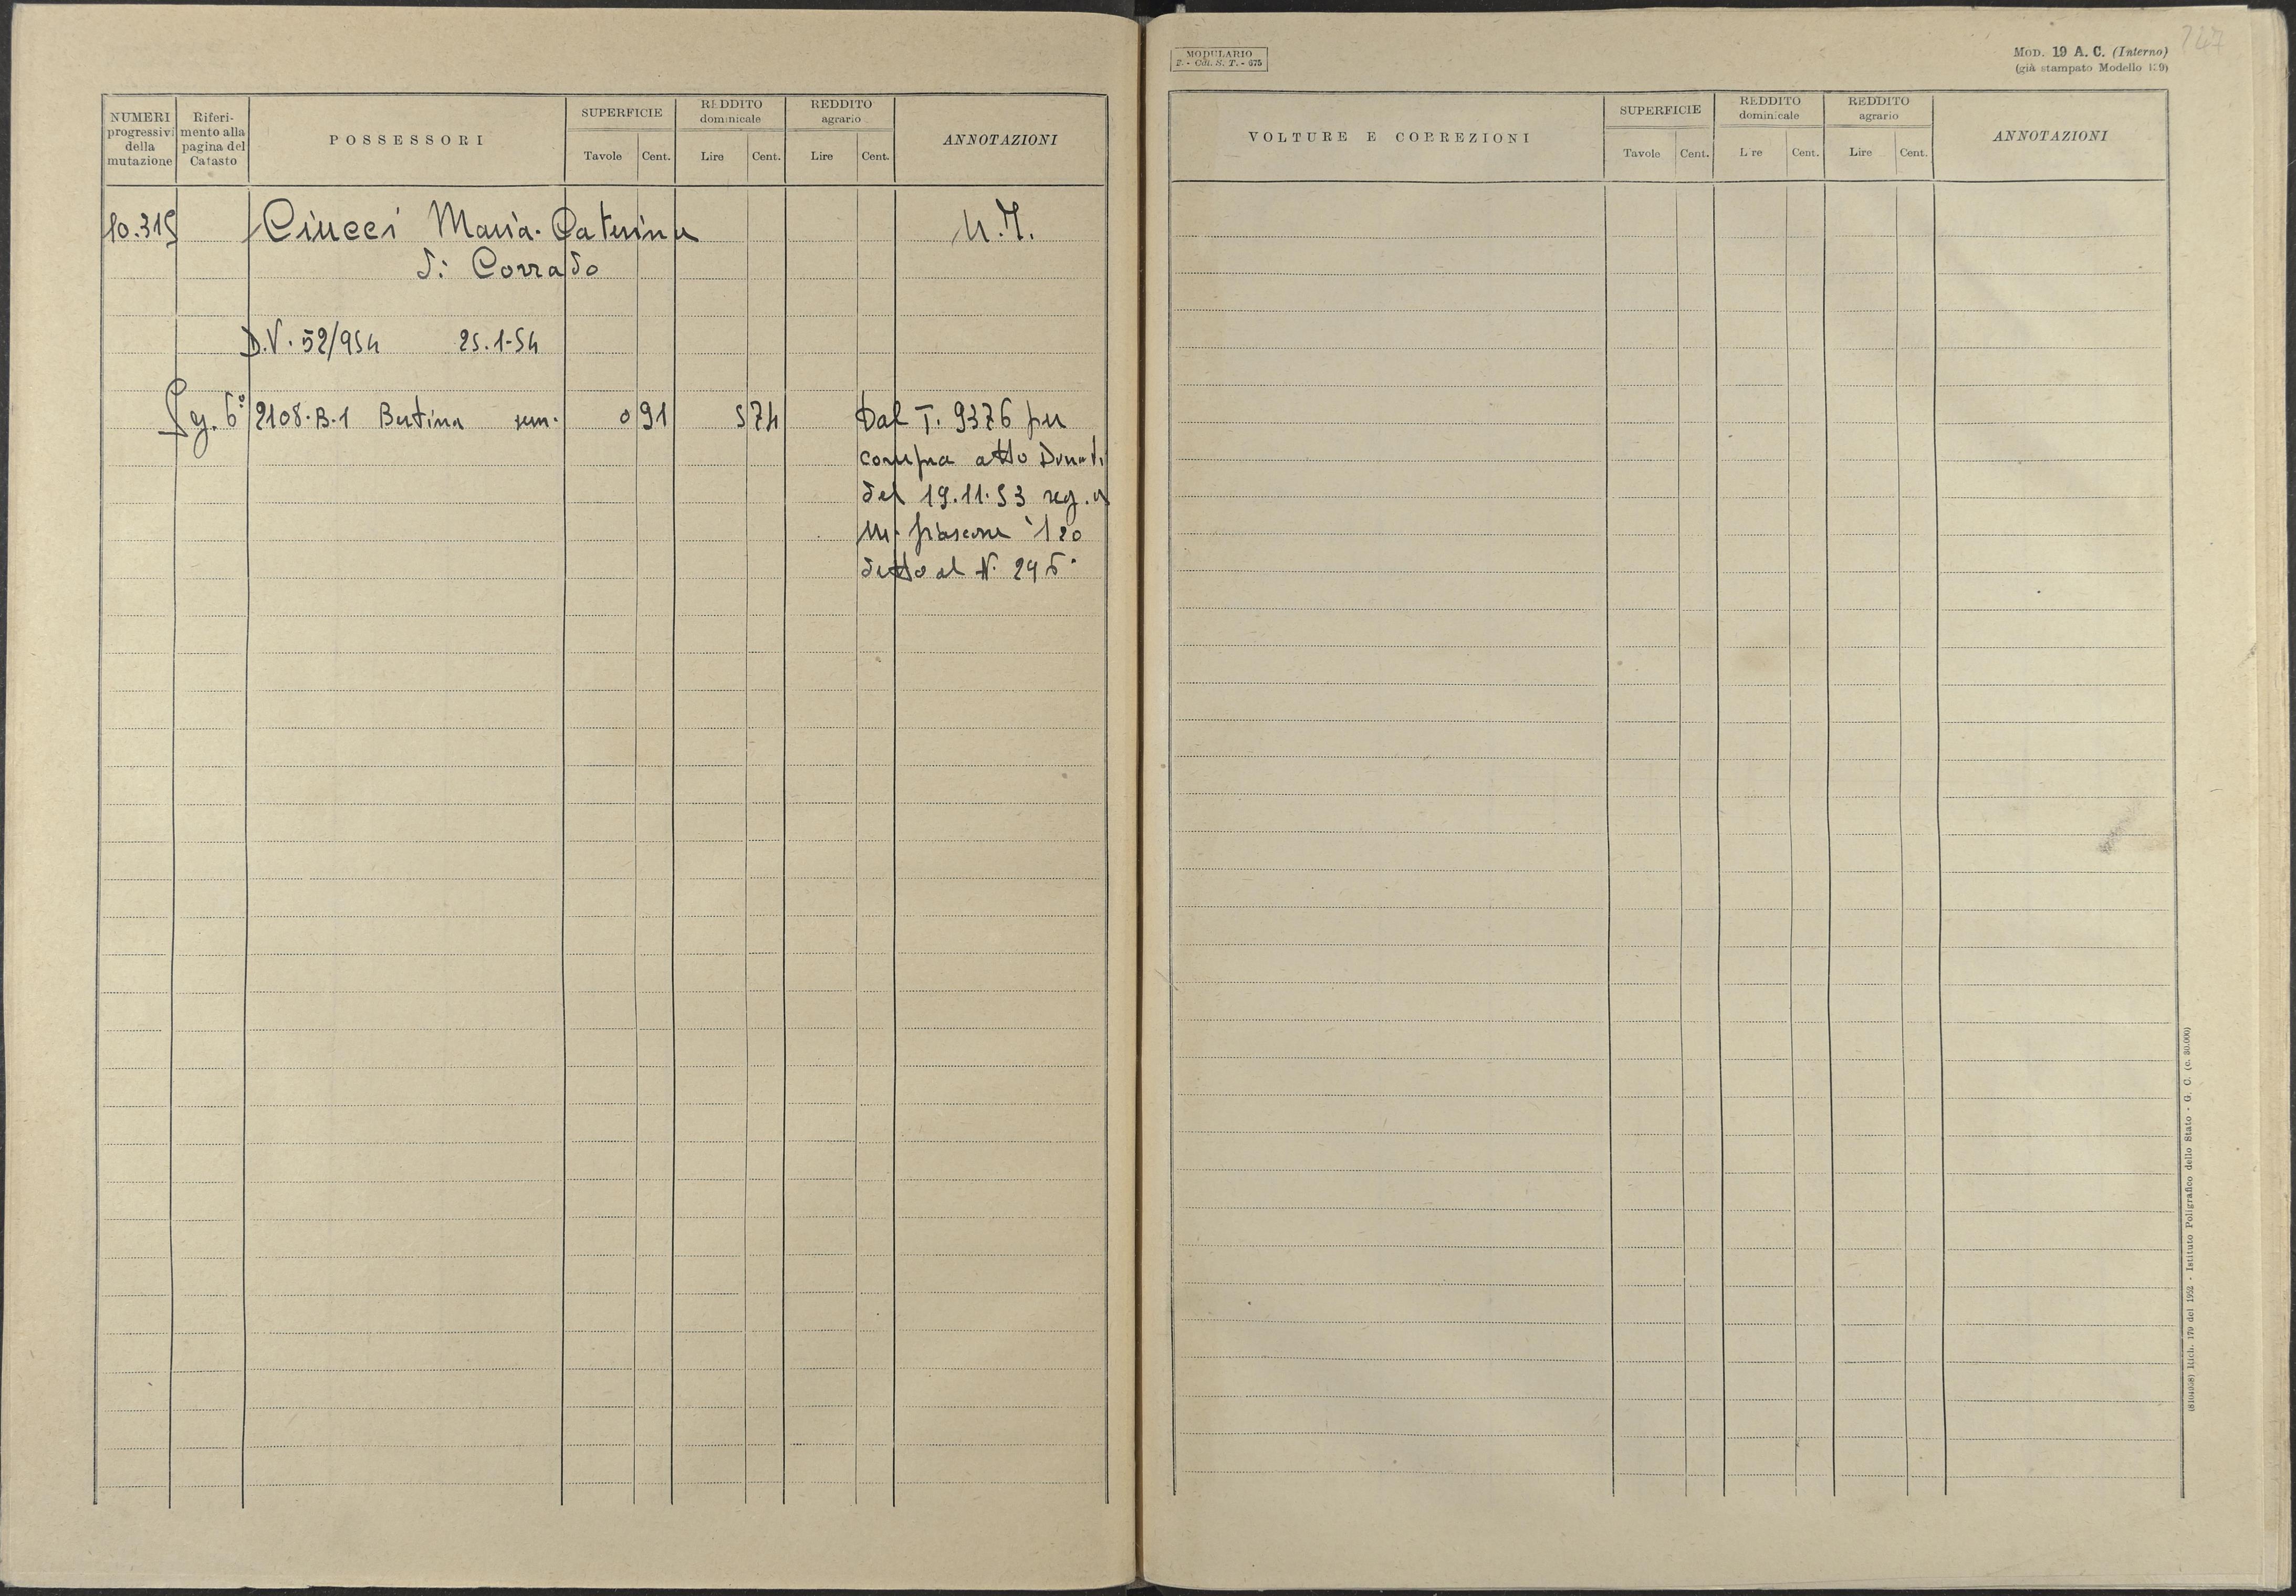 NUMERI progressivi della mutazione
Riferimento alla pagina del Catasto
POSSESSORI
SUPERFICIE
Tavole Cent.
REDDITO dominicale
Lire Cent.
REDDITO agrario
Lire Cent.
ANNOTAZIONI
10.315 Ciucci Maria-Caterina N.I.
di Corrado
D.V. 52/954 25.1-54
Sg. 6° 2108-B-1 Bertina sem. 0 91 5 74 Dal T. 9376 per
compra atto Donati
del 19.11.53 reg. a
M. fiascone 1 20
detto al N. 296
MODULARIO
F. - Cat. S. T. - 675
MOD. 19 A. C. (Interno)
(già stampato Modello 139)
VOLTURE E CORREZIONI
SUPERFICIE
Tavole Cent.
REDDITO dominicale
L re Cent.
REDDITO agrario
Lire Cent.
ANNOTAZIONI
Rich. 179 del 1952 - Istituto Poligrafico dello Stato - G. C. (c. 30.000)